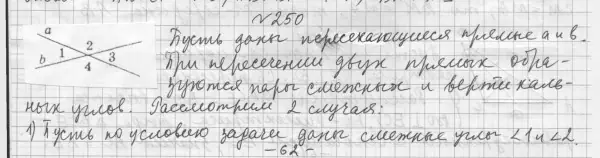 №250
a
b
1 2 3
4
Пусть даны пересекающиеся прямые a и b.
При пересечении двух прямых обра-
зуются пары смежных и вертикаль-
ных углов. Рассмотрим 2 случая:
1) Пусть по условию задачи даны смежные углы ∠1 и ∠2.
-62-